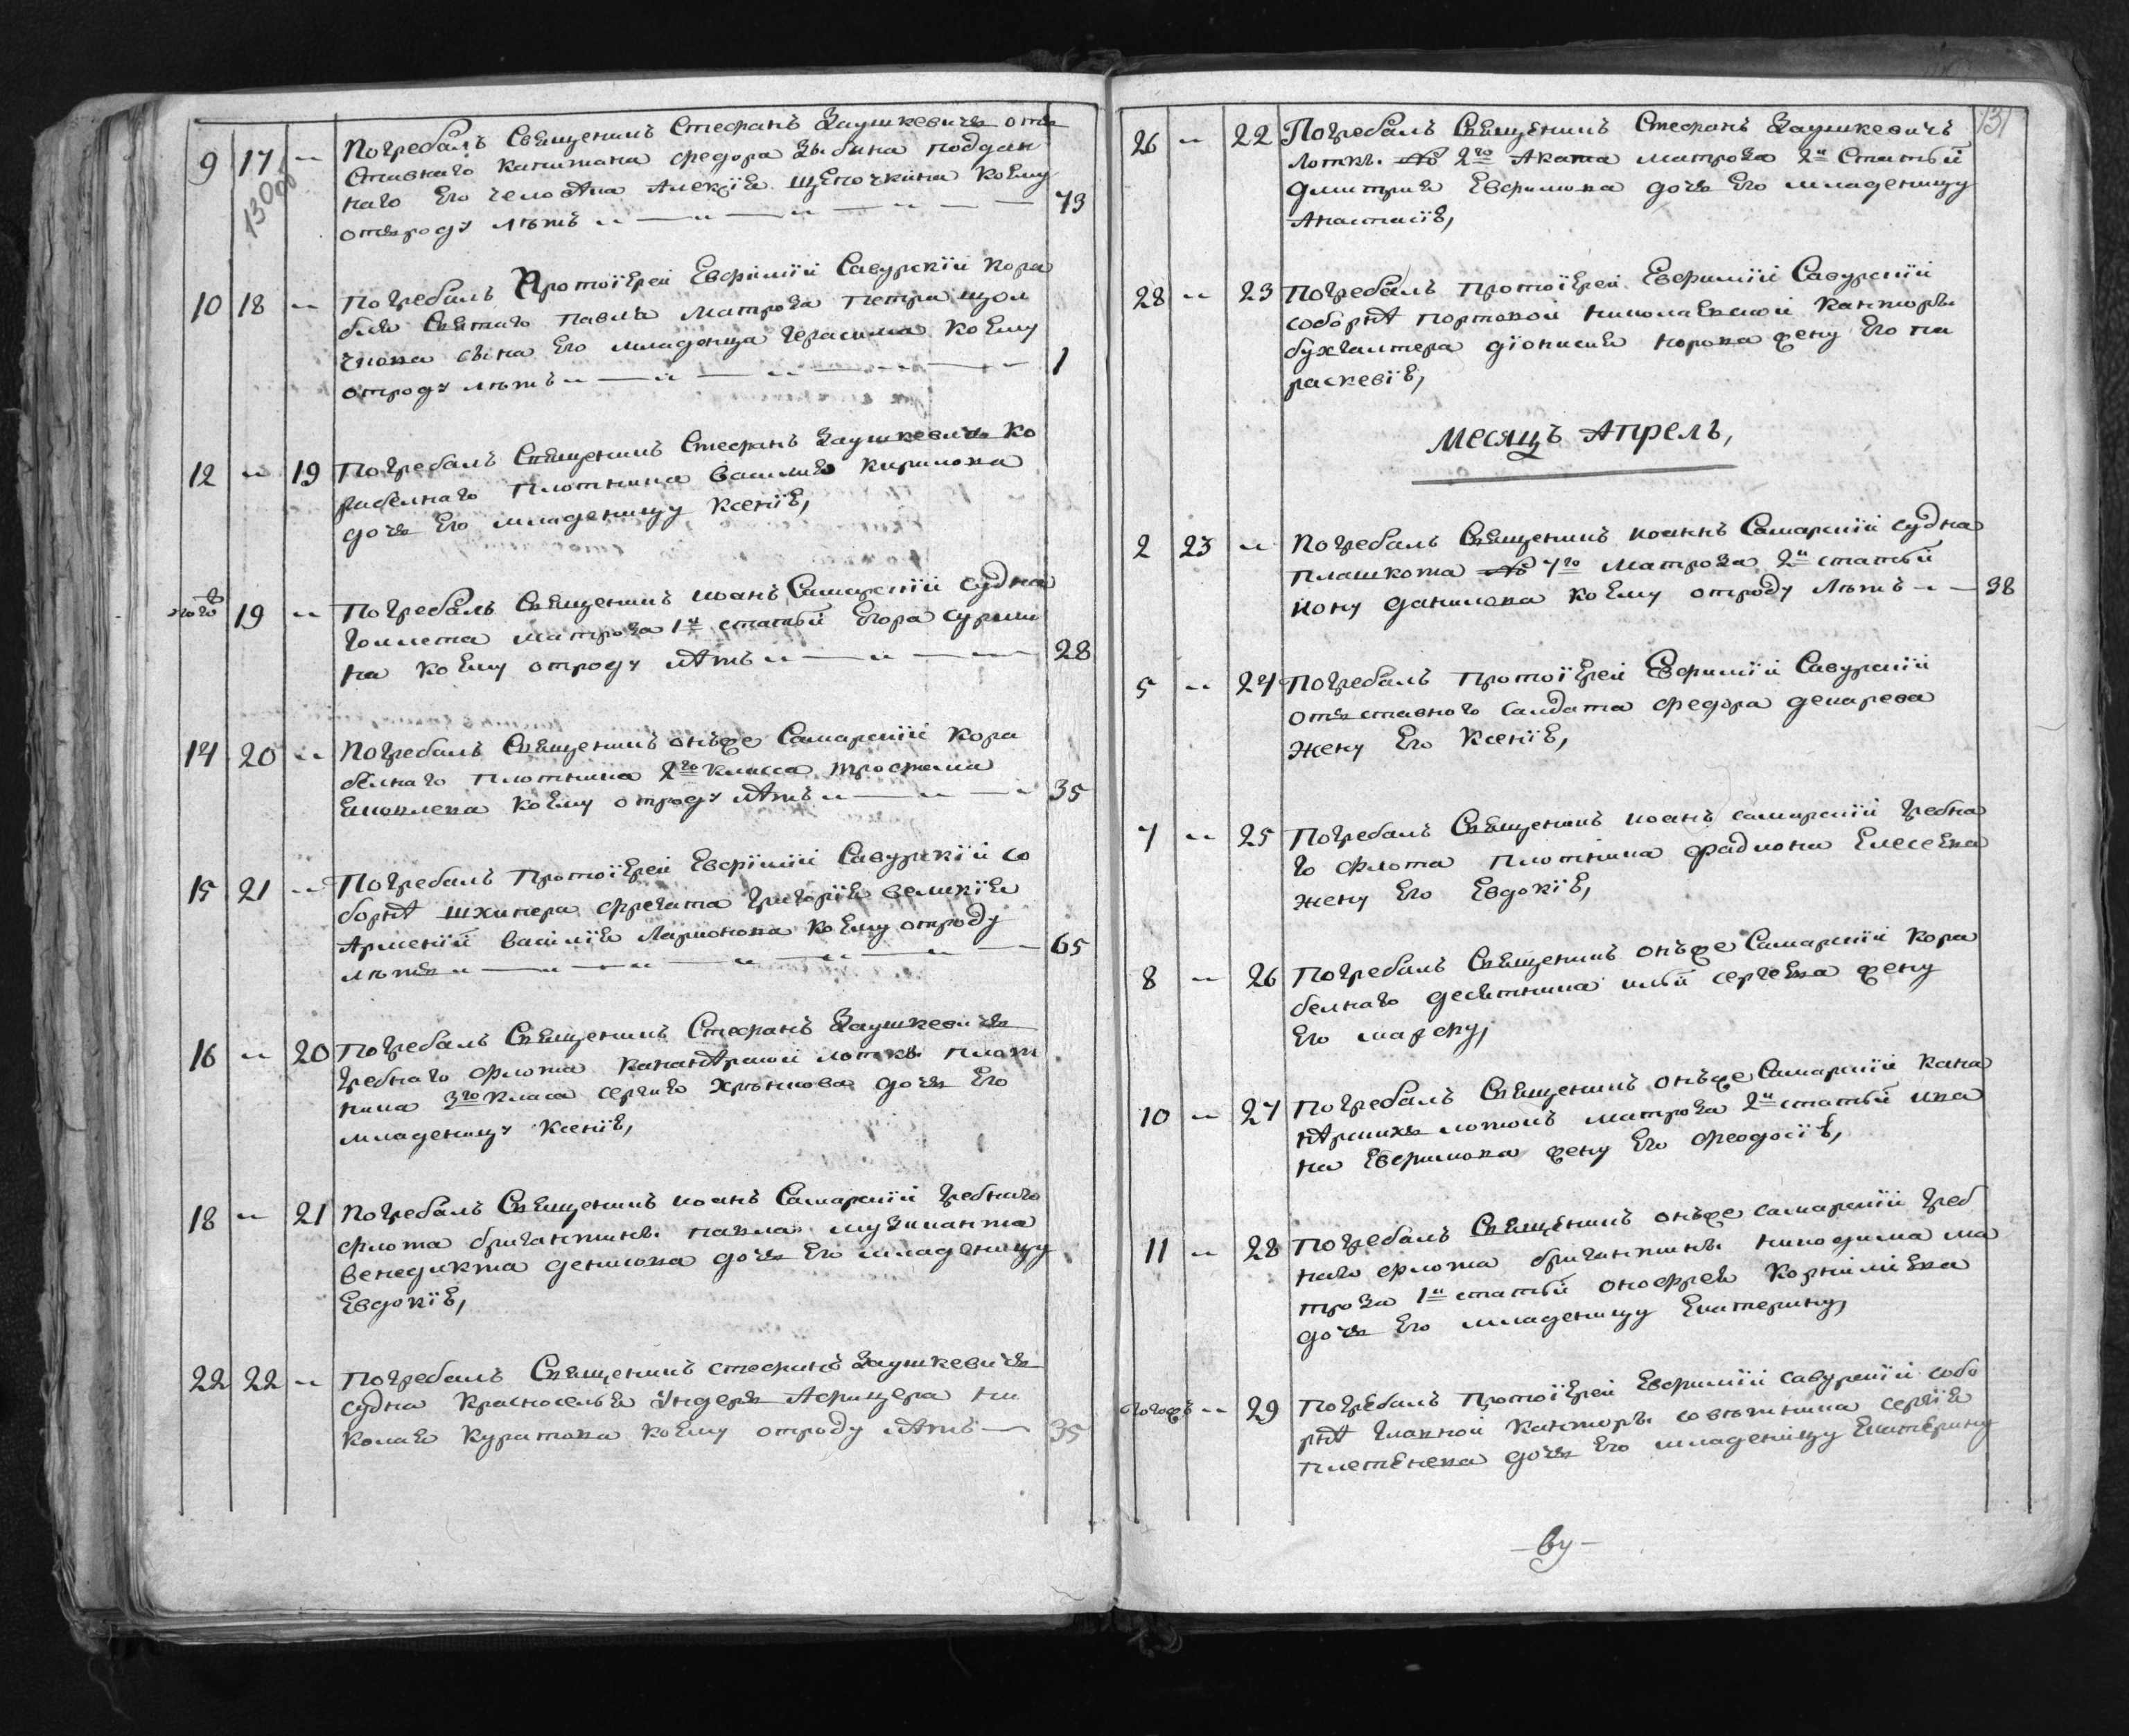 9 17 „ Погребалъ Священикъ Стефанъ Заушкевичъ отъ
ставнаго капитана Федора Зыбина поддан
наго Его человека Алексѣя Щепочкина коему
отъроду лѣтъ 73
130об
10 18 „ Погребалъ Протоіерей Евфимій Савурскій кора
бля Святаго Павла матроза Петра
сына его младенца Герасима коему
отроду лѣтъ 1
12 „ 19 Погребалъ Священикъ Стефанъ Заушкевичъ ко
рабелнаго плотника Василия Кирилова
дочь Его младеницу Ксенію,
тогож 19 „ Погребалъ Священикъ Иоанъ Самарский судна
матроза 1й статьи Егора Сурни
на коему отроду летъ 28
14 20 „ Погребалъ Священикъ онъже Самарскій кора
белнаго плотника 2го класса Трофима
Ековлева коему отроду летъ 35
15 21 „ Погребалъ Протоіерей Евфимій Савурскій со
борне шхипера фрегата Григорія великія
Арменіи Василія Ларионова коему отроду
лѣтъ 65
16 „ 20 Погребалъ Священикъ Стефанъ Заушкевичъ
гребнаго флота канонерской лотки плот
ника 3го класа Сергия Хрѣнкова дочь Его
младеницу Ксенію,
18 „ 21 Погребалъ Священикъ Иоанъ Самарскій гребнаго
флота бригантины Павла музиканта
Венедикта Денисова дочь Его младеницу
Евдокію,
22 22 „ Погребалъ Священикъ Стефанъ Заушкевичъ
судна Красноселья ундеръ Афицера Ни
колая Куратова коему отроду летъ 35
131
26 „ 22 Погребалъ Священикъ Стефанъ Заушкевичъ
лотки № 2го Аката матроза 2й Статьи
Дмитрия Евфимова дочь Его младеницу
Анастасію,
28 „ 23 Погребалъ Протоіерей Евфимій Савурскій
соборне портовой николаевской канторы
бухгалтера Діонисия Корова жену Его Па
раскевію,
Месяцъ Апрель,
2 23 „ Погребалъ Священикъ Иоаннъ Самарскій судна
плашкота № 7го матроза 2й статьи
Иону Данилова коему отроду лѣтъ 38
5 „ 24 Погребалъ Протоіерей Евфимій Савурскій
отъставного салдата Федора Декарева
жену Его Ксенію,
7 „ 25 Погребалъ Священикъ Иоанъ Самарскій гребна
го флота плотника Фадиона Елесеева
жену Его Евдокію,
8 „ 26 Погребалъ Священикъ онъже Самарскій кора
белнаго десятника Ильи Сергеева жену
Его Марфу,
10 „ 27 Погребалъ Священикъ онъже Самарскій кана
нерскихъ лотокъ матроза 2й статьи Ива
на Евфимова жену Его Феодосію,
11 „ 28 Погребалъ Священикъ онъже Самарскій греб
наго флота бригантины Никодима ма
троза 1й статьи Онофрея Корнилиева
дочь Его младеницу Екатерину,
тогожъ „ 29 Погребалъ Протоіерей Евфимій Савурскій собо
рне главной канторы советника Сергія
Плетенева дочь Его младеницу Екатерину